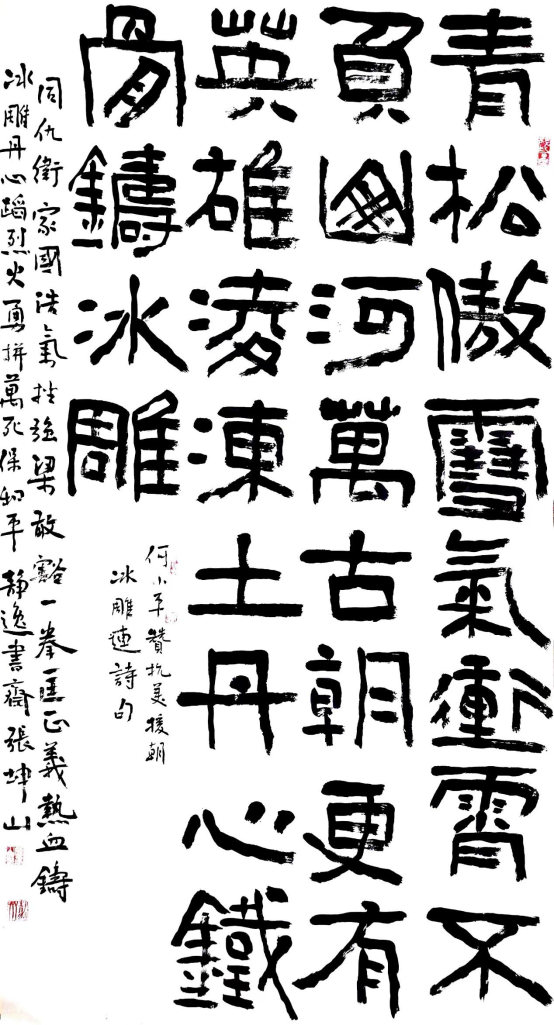 青松傲雪氣衝霄不
負國河萬古朝更有
英雄淩凍土丹心鐵
骨鑄冰雕
何小平贊抗美援朝
冰雕連詩句
同仇衛家國浩氣挫强梁敢豁一拳匡正義熱血鑄
冰雕丹心蹈烈火勇拼萬死保和平靜逸書齋張坤山